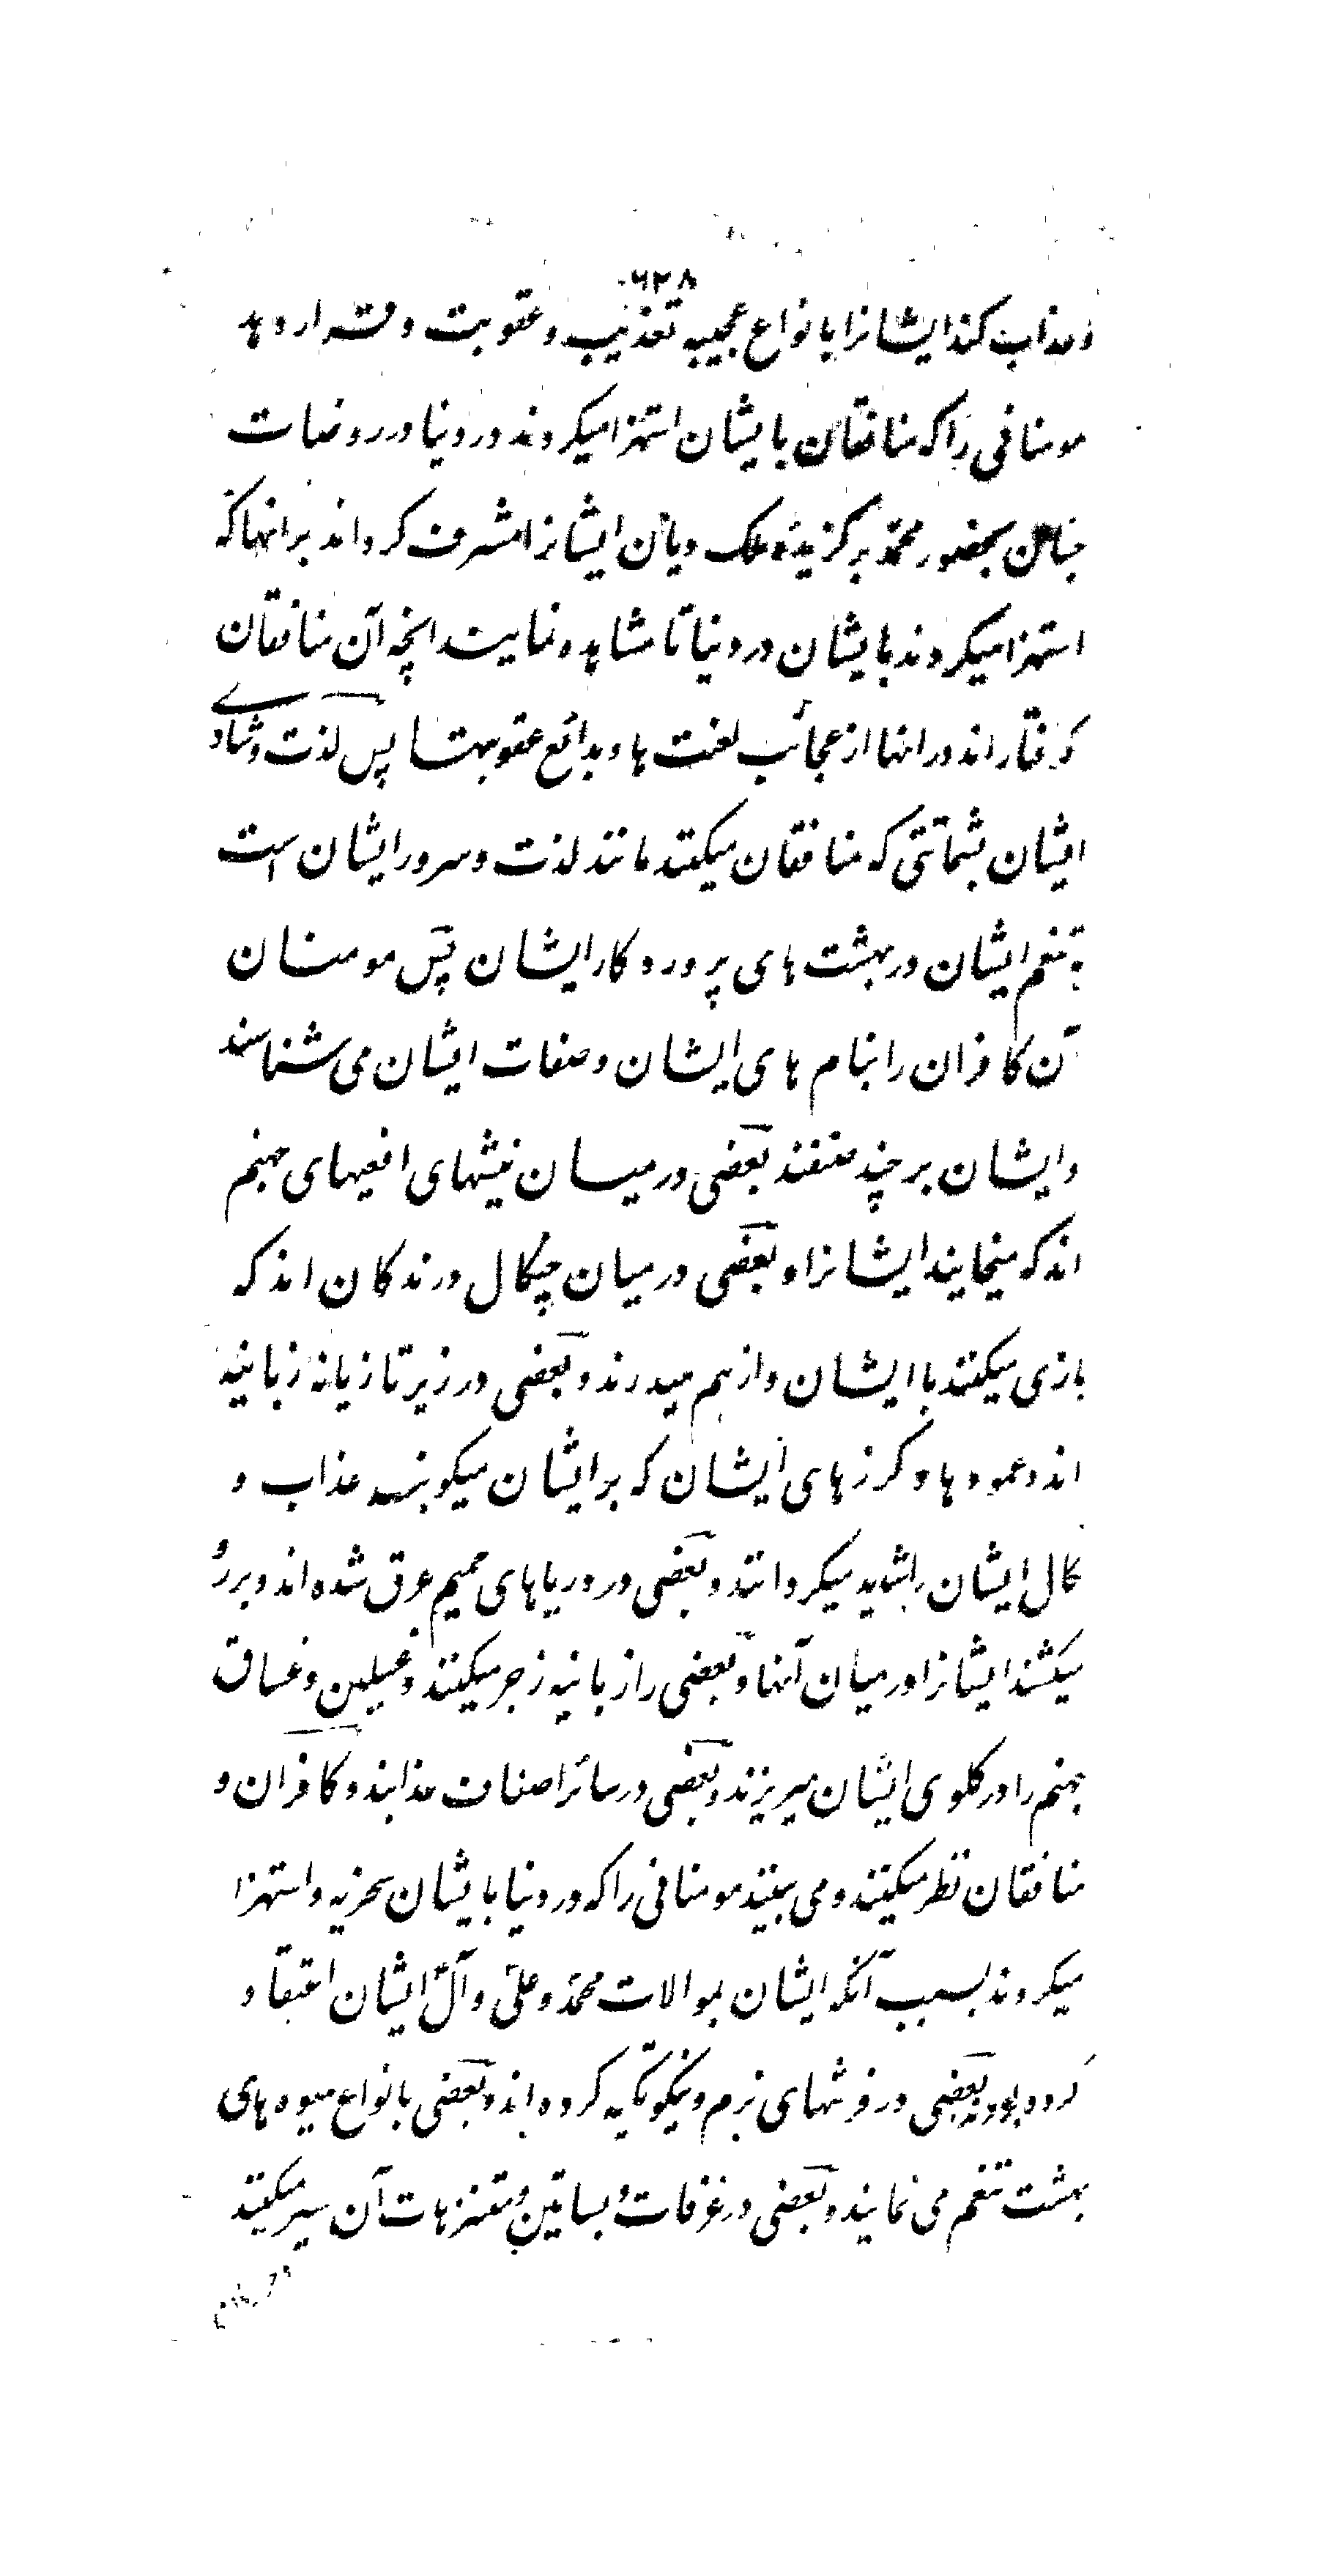 ۶۲۸
و عذاب کند ایشانرا بانواع عجیبه تعذیب و عقوبت و قرار دهد
مومنانی را که منافقان بایشان استهزا میکردند در دنیا در روضات
جنان بحضور محمد برگزیدهٔ ملک دیان ایشانرا مشرف گرداند بر انها که
استهزا میکردند بایشان در دنیا تا مشاهده نمایند انچه آن منافقان
گرفتار اند در انها از عجائب لعنت ها و بدائع عقوبتها پس لذت و شادی
ایشان بشماتتی که منافقان میکنند مانند لذت و سرور ایشان است
به تنعم ایشان در بهشت های پروردگار ایشان پس مومنان
آن کافران را بنام های ایشان و صفات ایشان می شناسند
و ایشان بر چند صنفند بعضی در میان نیشهای افعیهای جهنم
اند که میخایند ایشانرا و بعضی در میان چنگال درندگان اند که
بازی میکنند با ایشان و از هم میدرند و بعضی در زیر تازیانه زبانیه
اند و عمودها و گرزهای ایشان که بر ایشان میکوبند عذاب و
نکال ایشان را شدید میگردانند و بعضی در دریاهای حمیم غرق شده اند و برو
میکشند ایشانرا در میان آنها و بعضی را زبانیه زجر میکنند و غسلین و غساق
جهنم را در گلوی ایشان میریزند و بعضی در سائر اصناف عذابند و کافران و
منافقان نظر میکنند و می بینند مومنانی را که در دنیا بایشان سخریه و استهزا
میکردند بسبب آنکه ایشان بموالات محمد و علی و آل ایشان اعتقاد
کرده بودند بعضی در فرشهای نرم و نیکو تکیه کرده اند و بعضی بانواع میوه های
بهشت تنعم می نمایند و بعضی در غرفات و بساتین و متنزهات آن سیر میکنند